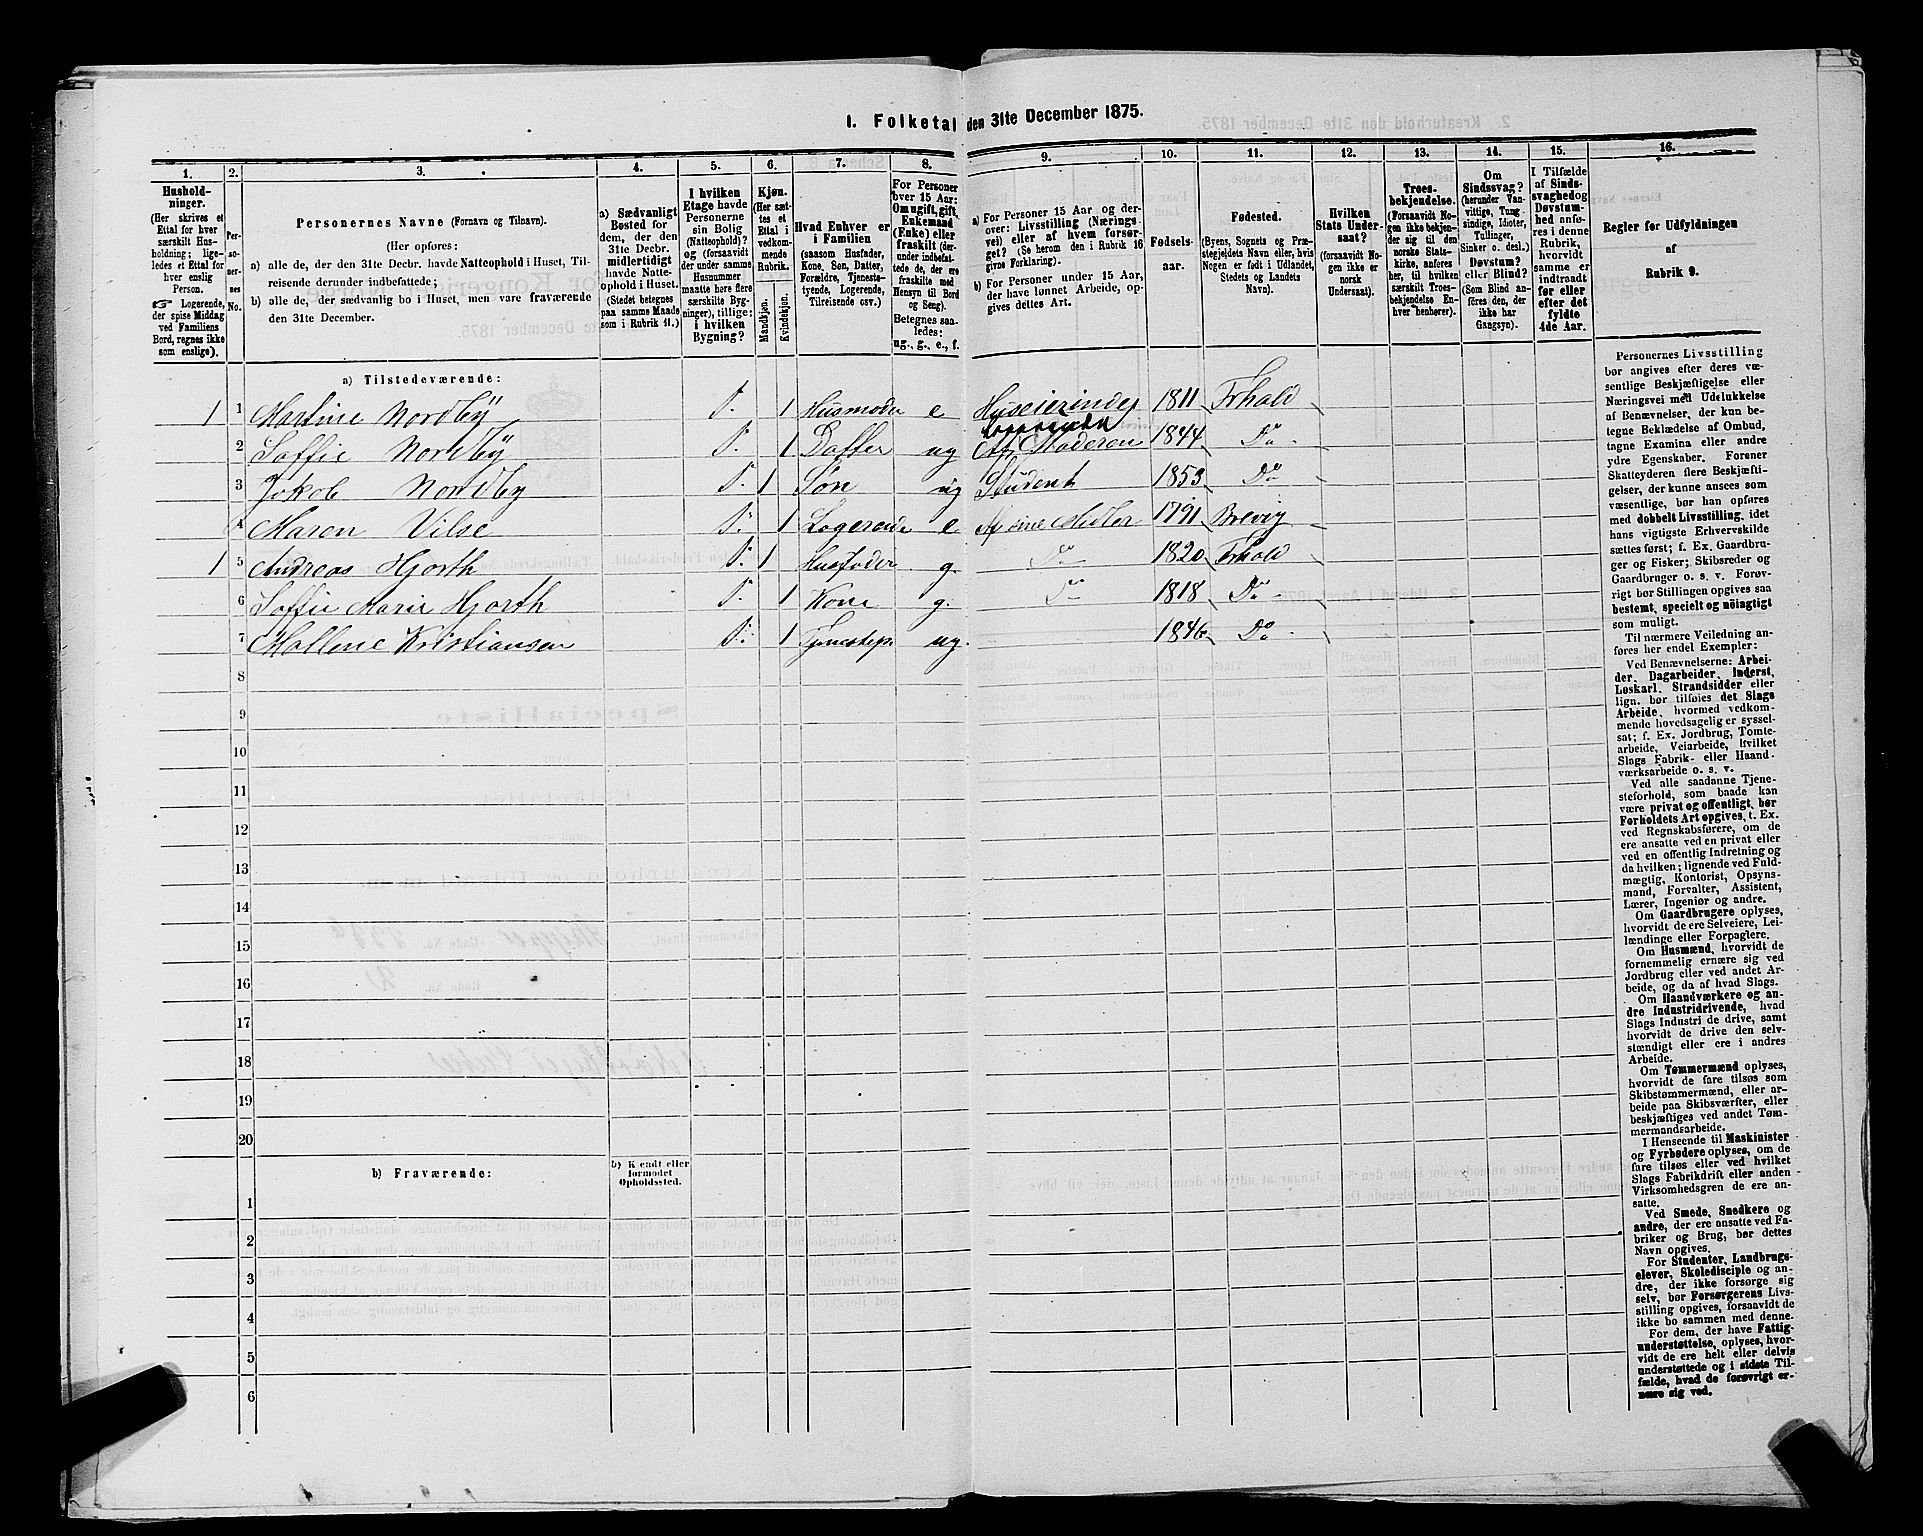 I. Folketal den 31te December 1875.
1. 2. 3. 4. 5. 6. 7. 8. 9. 10. 11. 12. 13. 14. 15. 16.
Hushold-
ninger.
(Her skrives et
Ettal for hver
særskilt Hus-
holdning; lige-
ledes et Ettal for
hver enslig
Person.
☞ Logerende,
der spise Middag
ved Familiens
Bord, regnes ikke
som enslige).
Per-
so-
ner-
nes
No.
Personernes Navne (Fornavn og Tilnavn).
(Her opføres:
a) alle de, der den 31te Decbr. havde Natteophold i Huset, Til-
reisende derunder indbefattede;
b) alle de, der sædvanlig bo i Huset, men vare fraværende
den 31te December.
a) Sædvanligt
Bosted for
dem, der den
31te Decbr.
midlertidigt
havde Natte-
ophold i Huset.
(Stedet betegnes
paa samme Maade
som i Rubrik 11.)
I hvilken
Etage havde
Personerne
sin Bolig
(Natteophold)?
og (forsaavidt
der under samme
Husnummer
maatte høre flere
særskilte Byg-
ninger), tillige:
i hvilken
Bygning?
Kjøn.
(Her sæt-
tes et
Ettal i
vedkom-
mende
Rubrik.
Mandkjøn.
Kvindekjøn.
Hvad Enhver er
i Familien
(saasom Husfader,
Kone, Søn, Datter,
Forældre, Tjeneste-
tyende, Logerende,
Tilreisende osv.)
For Personer
over 15 Aar:
Om ugift, gift,
Enkemand
(Enke) eller
fraskilt (der-
under indbefat-
tede de, der ere
fraskilte med
Hensyn til Bord
og Seng).
Betegnes saa-
ledes:
ug., g., e., f.
a) For Personer 15 Aar og der-
over: Livsstilling (Nærings-
vei) eller af hvem forsør-
get? (Se herom den i Rubrik 16
givne Forklaring).
b) For Personer under 15 Aar,
der have lønnet Arbeide, op-
gives dettes Art.
Fødsels-
aar.
Fødested.
(Byens, Sognets og Præ-
stegjeldets Navn eller, hvis
Nogen er født i Udlandet,
Stedets og Landets
Navn).
Hvilken
Stats Under-
saat?
(forsaavidt
Nogen ikke er
norsk
Undersaat).
Troes-
bekjendelse.
(Forsaavidt No-
gen ikke bekjen-
der sig til den
norske Stats-
kirke, anføres
her, til hvilken
særskilt Troes-
bekjendelse En-
hver henhører).
Om
Sindssvag?
(herunder Van-
vittige, Tung-
sindige, Idioter,
Tullinger,
Sinker o. desl.)
Døvstum?
eller Blind?
(Som Blind an-
føres den, der
ikke har
Gangsyn).
I Tilfælde
af Sinds-
svaghed og
Døvstum-
hed anfø-
res i denne
Rubrik,
hvorvidt
samme er
indtraadt
før eller
efter det
fyldte
4de Aar.
Regler før Udfyldningen
af
Rubrik 9.
a) Tilstedeværende:
1 1 Martine Nordby 1 Husmoder e Huseierinde 1811 Frhald
2 Soffie Nordby 1 Datter ug Af Moderen 1844 Do
3 Jakob Nordby 1 Søn ug Student 1853 Do
4 Maren Vilse 1 Logerende e Af sine Midler 1791 Brevig
1 5 Andreas Hjorth 1 Husfader g. Do 1820 Frhald
6 Soffie Marie Hjorth 1 Kone g. Do 1818 Do
7 Mallene Kristiansen 1 ug. 1846 Do
8
9
10
11
12
13
14
15
16
17
18
19
20
b) Fraværende:
b) Kjendt eller
formodet
Opholdssted.
1
2
3
4
5
6
Personernes Livsstilling
bør angives efter deres væ-
sentlige Beskjæftigelse eller
Næringsvei med Udelukkelse
af Benævnelser, der kun be-
tegne Beklædelse af Ombud,
tagne Examina eller andre
ydre Egenskaber. Forener
Skatteyderen flere Beskjæfti-
gelser, der kunne ansees som
væsentlige, bør han opføres
med dobbelt Livsstilling, idet
hans vigtigste Erhvervskilde
sættes først; f. Ex. Gaardbru-
ger og Fisker; Skibsreder og
Gaardbruger o. s. v. Forøv-
rigt bør Stillingen opgives saa
bestemt, specielt og nøiagtigt
som muligt.
Til nærmere Veiledning an-
føres her endel Exempler:
Ved Benævnelserne: Arbei-
der, Dagarbeider, Inderst,
Løskarl, Strandsidder eller
lign. bør tilføies det Slags
Arbeide, hvormed vedkom-
mende hovedsagelig er syssel-
sat; f. Ex. Jordbrug, Tomte-
arbeide, Veiarbeide, hvilket
Slags Fabrik- eller Haand-
værksarbeide o. s. v.
Ved alle saadanne Tjene-
steforhold, som baade kan
være privat og offentligt, bør
Forholdets Art opgives, t. Ex.
ved Regnskabsførere, om de
ere ansatte ved en privat eller
ved en offentlig Indretning og
da hvilken; lignende ved Fuld-
mægtig, Kontorist, Opsyns-
mand, Forvalter, Assistent,
Lærer, Ingeniør og andre.
Om Gaardbrugere oplyses,
hvorvidt de ere Selveiere, Lei-
lændinge eller Forpagtere.
Om Husmænd, hvorvidt de
fornemmelig ernære sig ved
Jordbrug eller ved andet Ar-
beide, og da af hvad Slags.
Om Haandværkere og an-
dre Industridrivende, hvad
Slags Industri de drive, samt
hvorvidt de drive den selv-
stændigt eller ere i andres
Arbeide.
Om Tømmermænd oplyses,
hvorvidt de fare tilsøs som
Skibstømmermænd, eller ar-
beide paa Skibsværfter, eller
beskjæftiges ved andet Tøm-
mermandsarbeide.
I Henseende til Maskinister
og Fyrbødere oplyses, om de
fare tilsøs eller ved hvilket
Slags Fabrikdrift eller anden
Virksomhedsgren de ere an-
satte.
Ved Smede, Snedkere og
andre, der ere ansatte ved Fa-
briker og Brug, bør dettes
Navn opgives.
For Studenter, Landbrugs-
elever, Skoledisciple og an-
dre, der ikke forsørge sig
selv, bør Forsørgerens Livs-
stilling opgives, forsaavidt de
ikke bo sammen med denne.
For dem, der have Fattig-
understøttelse, oplyses, hvor-
vidt de ere helt eller delvis
understøttede og i sidste Til-
fælde, hvad de forøvrigt er-
nære sig ved.